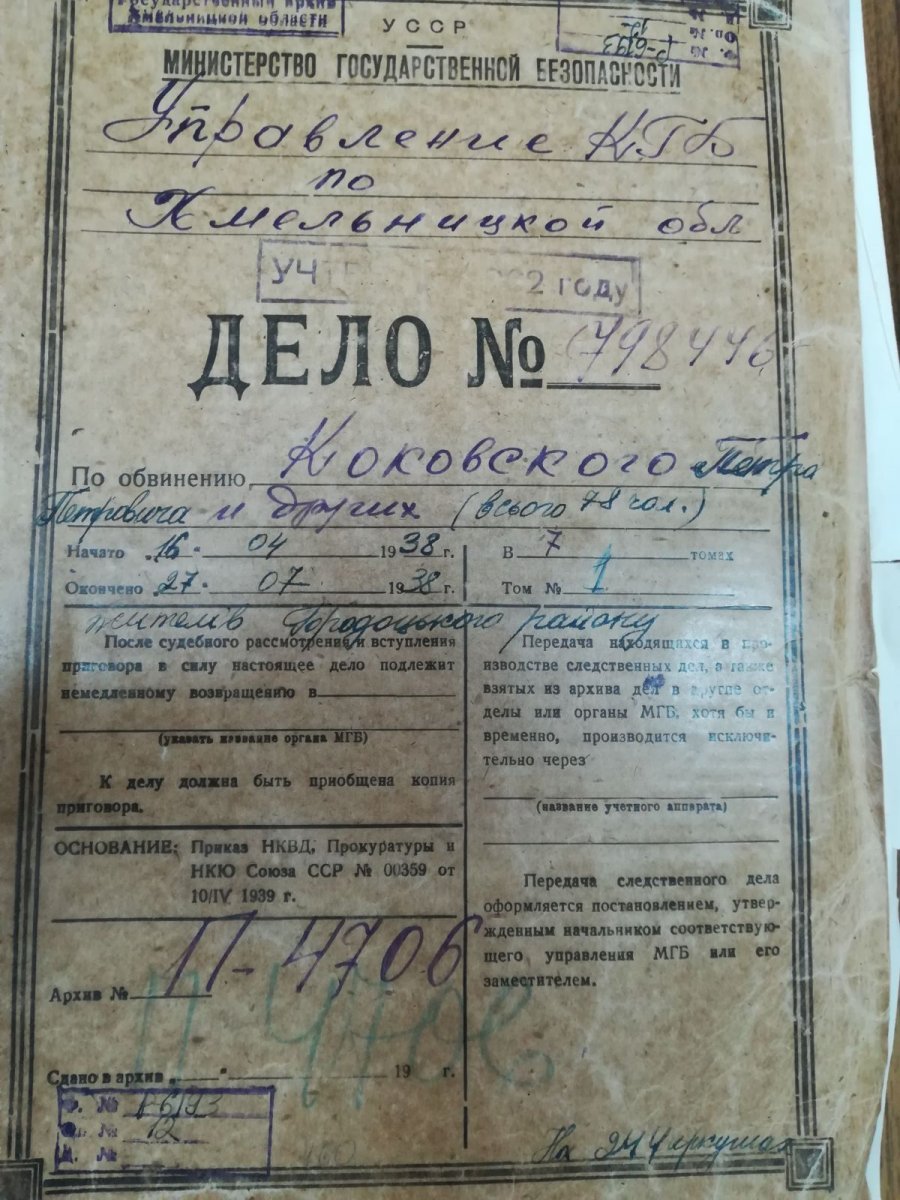 Государственный архив
Хмельницкой области
Р-6193
УССР
МИНИСТЕРСТВО ГОСУДАРСТВЕННОЙ БЕЗОПАСНОСТИ
Управление КГБ
по
Хмельницкой обл
2 году
ДЕЛО № 798446
По обвинению Коковского Петра
Петровича и других (всього 78 чол.)
Начато "16" 04 1938 г.
Окончено "27" 07 1938 г.
В 7 томах
Том № 1
жителів Городоцького району
После судебного рассмотрения и вступления
приговора в силу настоящее дело подлежит
немедленному возвращению в
(указать название органа МГБ)
К делу должна быть приобщена копия
приговора.
ОСНОВАНИЕ: Приказ НКВД, Прокуратуры и
НКЮ Союза ССР № 00359 от
10/IV 1939 г.
Архив № П-4706
П-4706
Сдано в архив " " 19 г.
Ф. № Р-6193
Оп. № 12
Д. №
Передача находящихся в про-
изводстве следственных дел, а также
взятых из архива дел в другие от-
делы или органы МГБ, хотя бы и
временно, производится исключи-
тельно через
(название учетного аппарата)
Передача следственного дела
оформляется постановлением, утвер-
жденным начальником соответствую-
щего управления МГБ или его
заместителем.
На 244 аркушах